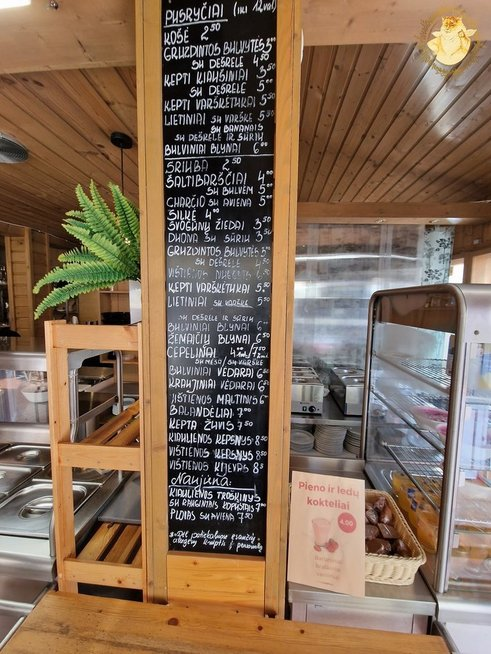 PUSRYČIAI (IKI 12 VAL)
KOŠĖ 2⁵⁰
GRUZDINTOS BULVYTĖS 3⁵⁰
SU DEŠRELE 4⁵⁰
KEPTI KIAUŠINIAI 3⁵⁰
SU DEŠRELE 5⁰⁰
KEPTI VARŠKĖTUKAI 5⁵⁰
LIETINIAI SU VARŠKE 5⁵⁰
SU BANANAIS
SU DEŠRELE IR SŪRIU
BULVINIAI BLYNAI 6⁰⁰
SRIUBA 2⁵⁰
ŠALTIBARŠČIAI 4⁰⁰
SU BULVĖM 5⁰⁰
CHARČIO SU AVIENA 5⁰⁰
SILKĖ 4⁰⁰
SVOGŪNŲ ŽIEDAI 3⁵⁰
DUONA SU SŪRIU 3⁵⁰
GRUZDINTOS BULVYTĖS 3⁵⁰
SU DEŠRELE 4⁵⁰
VIŠTIENOS
KEPTI VARŠKĖTUKAI 5⁵⁰
LIETINIAI SU VARŠKE 5⁵⁰
SU DEŠRELE IR SŪRIU
BULVINIAI BLYNAI 6⁰⁰
ŽEMAIČIŲ BLYNAI 6⁵⁰
CEPELINAI
SU MĖSA / SU VARŠKE
BULVINIAI VĖDARAI 6⁵⁰
KRAUJINIAI VĖDARAI 6⁵⁰
VIŠTIENOS MALTINIS 6⁵⁰
BALANDĖLIAI 7⁰⁰
KEPTA ŽUVIS 7⁵⁰
KIAULIENOS KEPSNYS 8⁵⁰
VIŠTIENOS KEPSNYS 8⁵⁰
VIŠTIENOS KIJEVAS 8⁵
Naujiena:
KIAULIENOS TROŠKINYS
SU RAUGINTAIS KOPŪSTAIS 7⁰⁰
PLOVAS SU AVIENA 7⁵⁰
Pieno ir ledų
kokteiliai
4,00